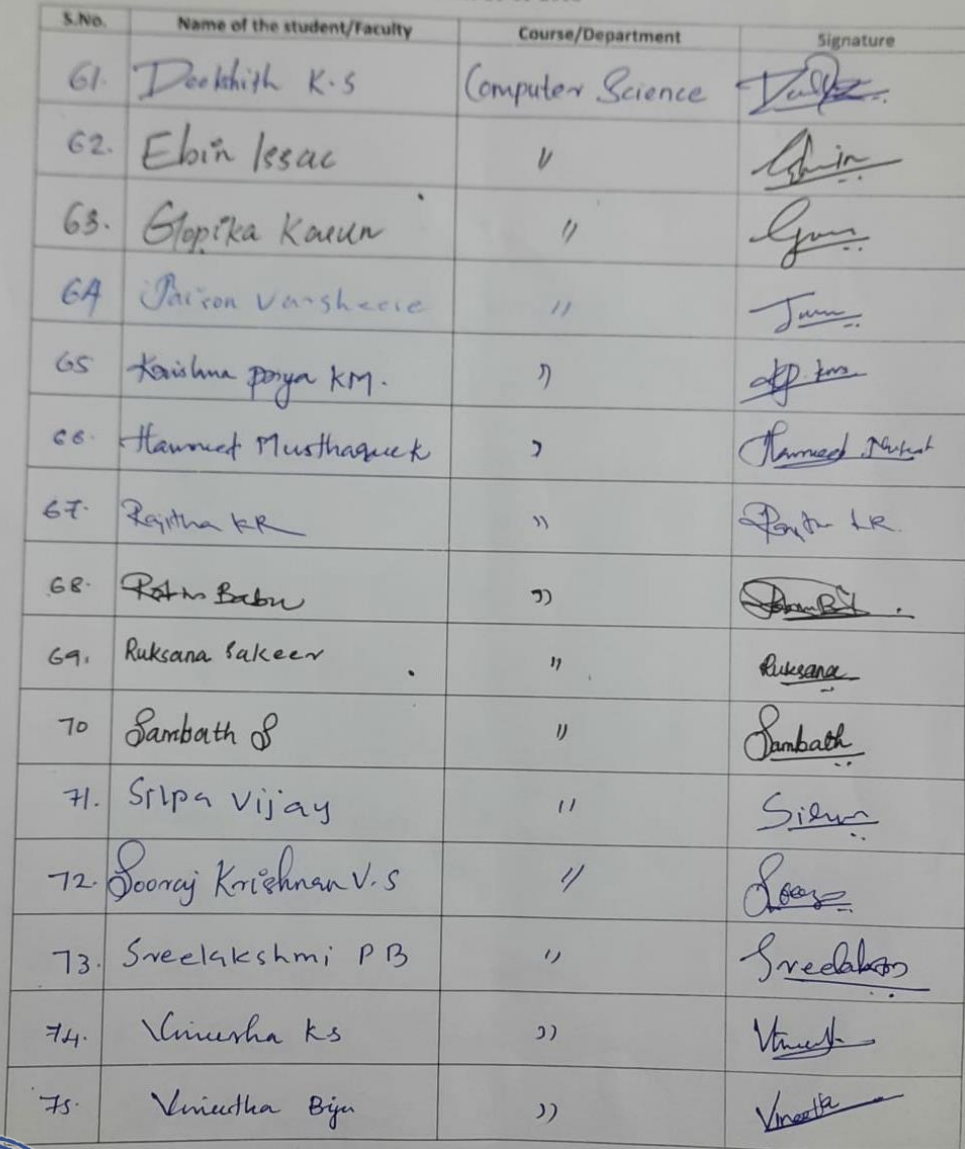 S.No. Name of the student/Faculty Course/Department Signature
61. Deekshith K.S Computer Science
62. Ebin Issac "
63. Gopika " 
64 "
65 Krishna priya KM. "
66. Hameed Musthaque k "
67. Rajitha KR " Rajitha K.R.
68. Babu "
69. Ruksana Sakeer " Ruksana
70 Sambath S " Sambath
71. Silpa Vijay "
72. Sooraj Krishnan V.S "
73. Sreelakshmi P B "
74. Vinusha KS "
75. Vineetha Biju " Vineetha